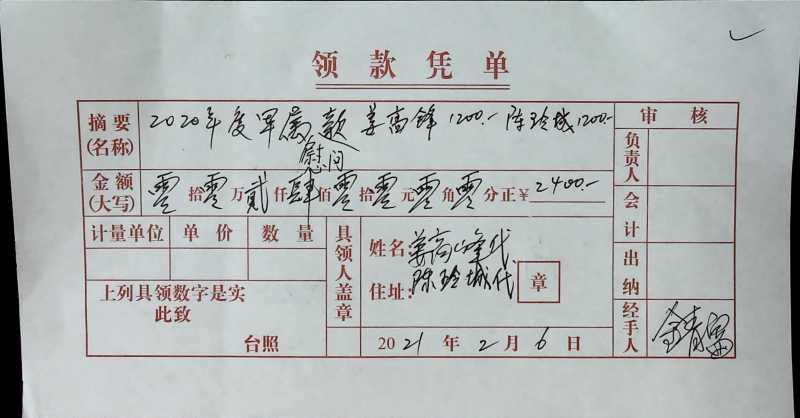 领款凭单
摘要(名称) 2020年度军属慰问款 姜高锋 1200.- 陈玲城 1200.-
审核
金额(大写) 零拾零万贰仟肆佰零拾零元零角零分正¥2400.-
负责人
会计
出纳
经手人
计量单位 单价 数量
具领人盖章
姓名: 姜高峰代
陈玲城代
住址:
章
上列具领数字是实
此致
台照
2021年2月6日